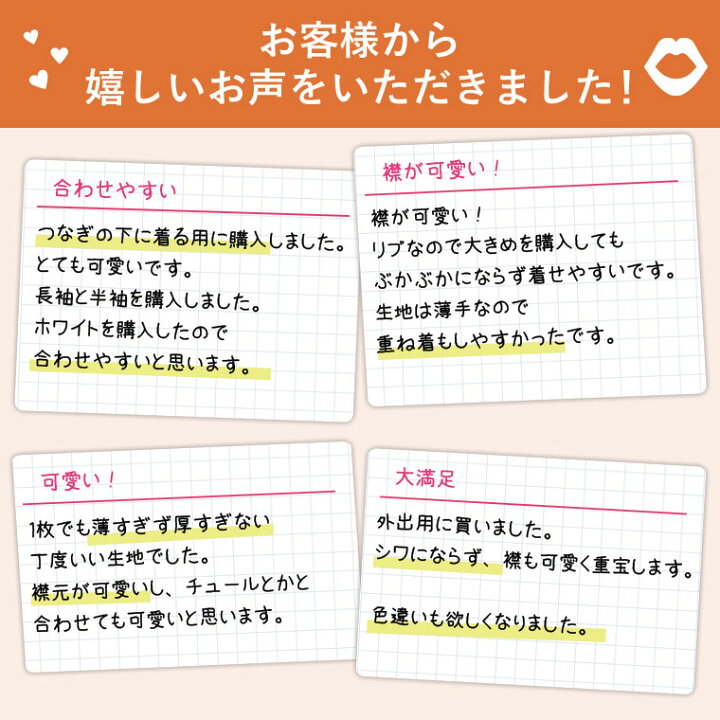 お客様から
嬉しいお声をいただきました!
合わせやすい
つなぎの下に着る用に購入しました。
とても可愛いです。
長袖と半袖を購入しました。
ホワイトを購入したので
合わせやすいと思います。
襟が可愛い!
襟が可愛い!
リブなので大きめを購入しても
ぶかぶかにならず着せやすいです。
生地は薄手なので
重ね着もしやすかったです。
可愛い!
1枚でも薄すぎず厚すぎない
丁度いい生地でした。
襟元が可愛いし、チュールとかと
合わせても可愛いと思います。
大満足
外出用に買いました。
シワにならず、襟も可愛く重宝します。
色違いも欲しくなりました。